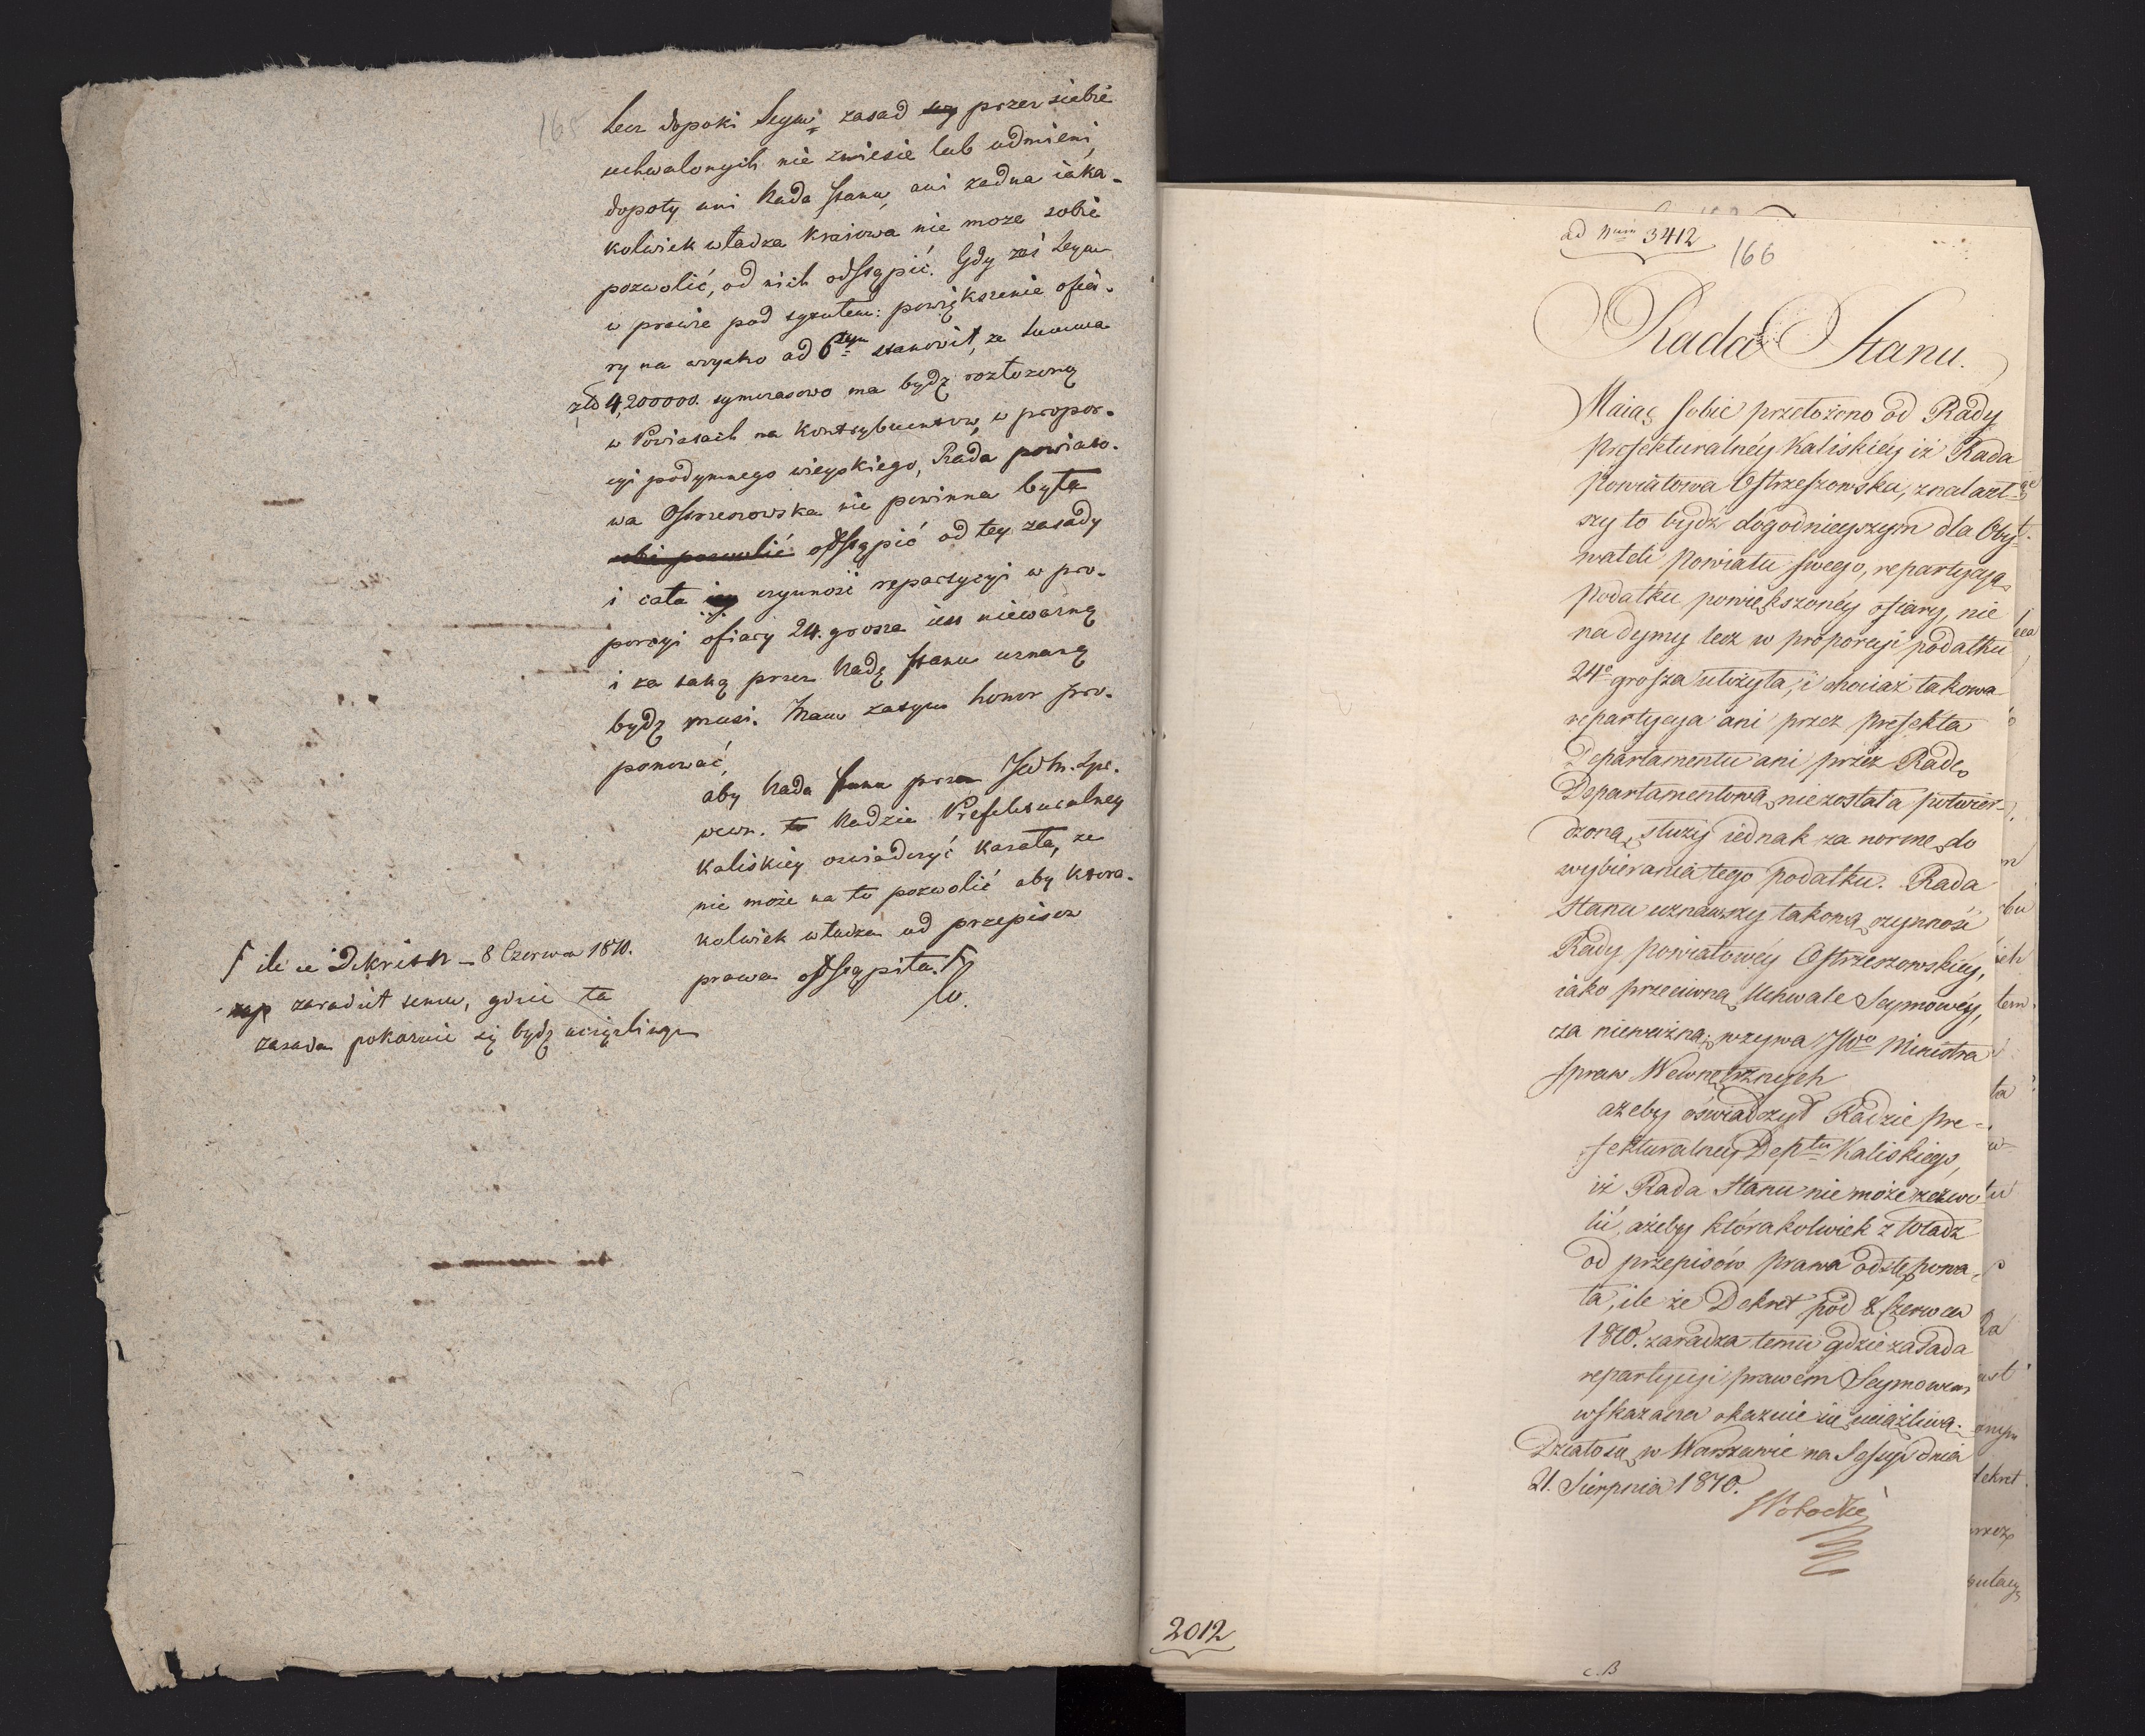 165
Lecz dopoki Seym zasad przez siebie
uchwalonych nie zniesie lub odmieni,
dopoty ani Rada Stanu, ani zadna iaka-
kolwiek władza kraiowa nie moze sobie
pozwolić, od nich odstąpić. Gdy zaś Seym
w prawie pod tytułem: powiększenie ofia-
ry na woysko ad 6tum stanowił, że summa
złp 4,200000. tymczasowo ma bydź rozłożoną
w Powiatach na kontrybuentow, w propor-
cyi podymnego wieyskiego, Rada powiato-
wa Ostrzeszowska nie powinna była
sobie pozwolić odstąpić od tey zasady
i cała czynność repartycyi w pro-
porcyi ofiary 24. grosza iest nieważną
i za taką przez Radę Stanu uznaną
bydź musi. Mam zatym honor pro-
ponować,
aby Rada Stanu przez JWM. Spr.
wewn. Radzie Prefekturalney
Kaliskiey oswiadczyć kazała, ze
nie może na to pozwolić aby ktora-
kolwiek władza od przepisow
prawa odstąpiła.
ile ie Dekret 8 Czerwca 1810.
zaradził temu, gdzie ta
zasada pokazuie się bydź uciążliwą
ad Num 3412
166
Rada Stanu.
Maiąc sobie przełożono od Rady
Prefekturalnéy Kaliskiéy iż Rada
Powiatowa Ostrzeszowska, znalazł-
szy to bydź dogodnieyszym dla Oby-
wateli Powiatu swego, repartycyą
Podatku powiększonéy ofiary, nie
na dymy lecz w proporcyi podatku
24o grosza ułożyła, i chociaż takowa
repartycya ani przez Prefekta
Departamentu ani przez Radę
Departamentową niezostała potwier-
dzoną, służy iednak za normę do
wybierania tego podatku. Rada
Stanu uznawszy takową czynność
Rady Powiatowéy Ostrzeszowskiéy,
iako przeciwną Uchwale Seymowéy,
za nieważną; wzywa JWo Ministra
Spraw Wewnętrznych
ażeby oświadczył Radzie Pre-
fekturalnéy Deptu Kaliskiego,
iż Rada Stanu nie może zezwo
lić, ażeby którakolwiek z Władz
od przepisów prawa odstępowa-
ła, ile że Dekret pod 8 Czerwca
1810. zaradza temu gdzie zasada
repartycyi prawem Seymowem
wskazana okazuie się uciążliwą.
Działo się w Warszawie na Sessyi dnia
21. Sierpnia 1810.
2012
C.B